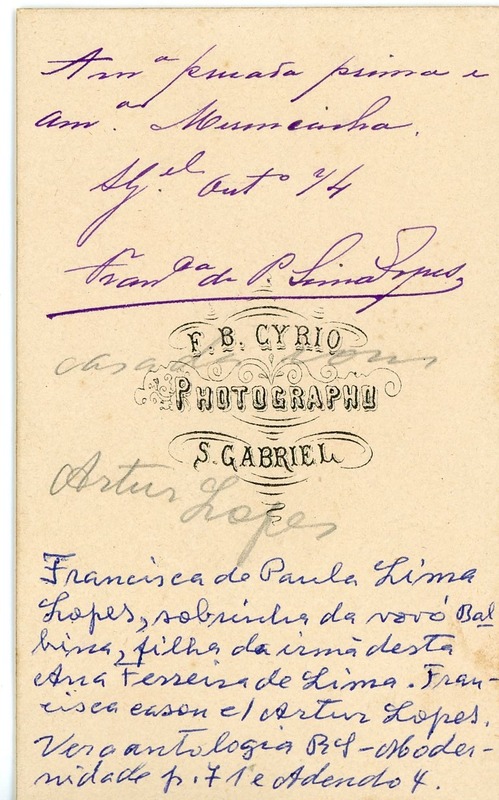 A m.ª prezada prima e
am.ª Mimicinha.
S. G.el Out.º 74
Fran.ca de P. Lima Lopes
F. B. CYRIO
casada com
PHOTOGRAPHO
S. GABRIEL
Artur
Lopes
Francisca de Paula Lima
Lopes, sobrinha da vovó Bal
bina, filha da irmã desta
Ana Ferreira de Lima. Fran-
cisca casou c/ Artur Lopes.
Ver a antologia RS-Moder-
nidade p. 71 e Adendo 4.